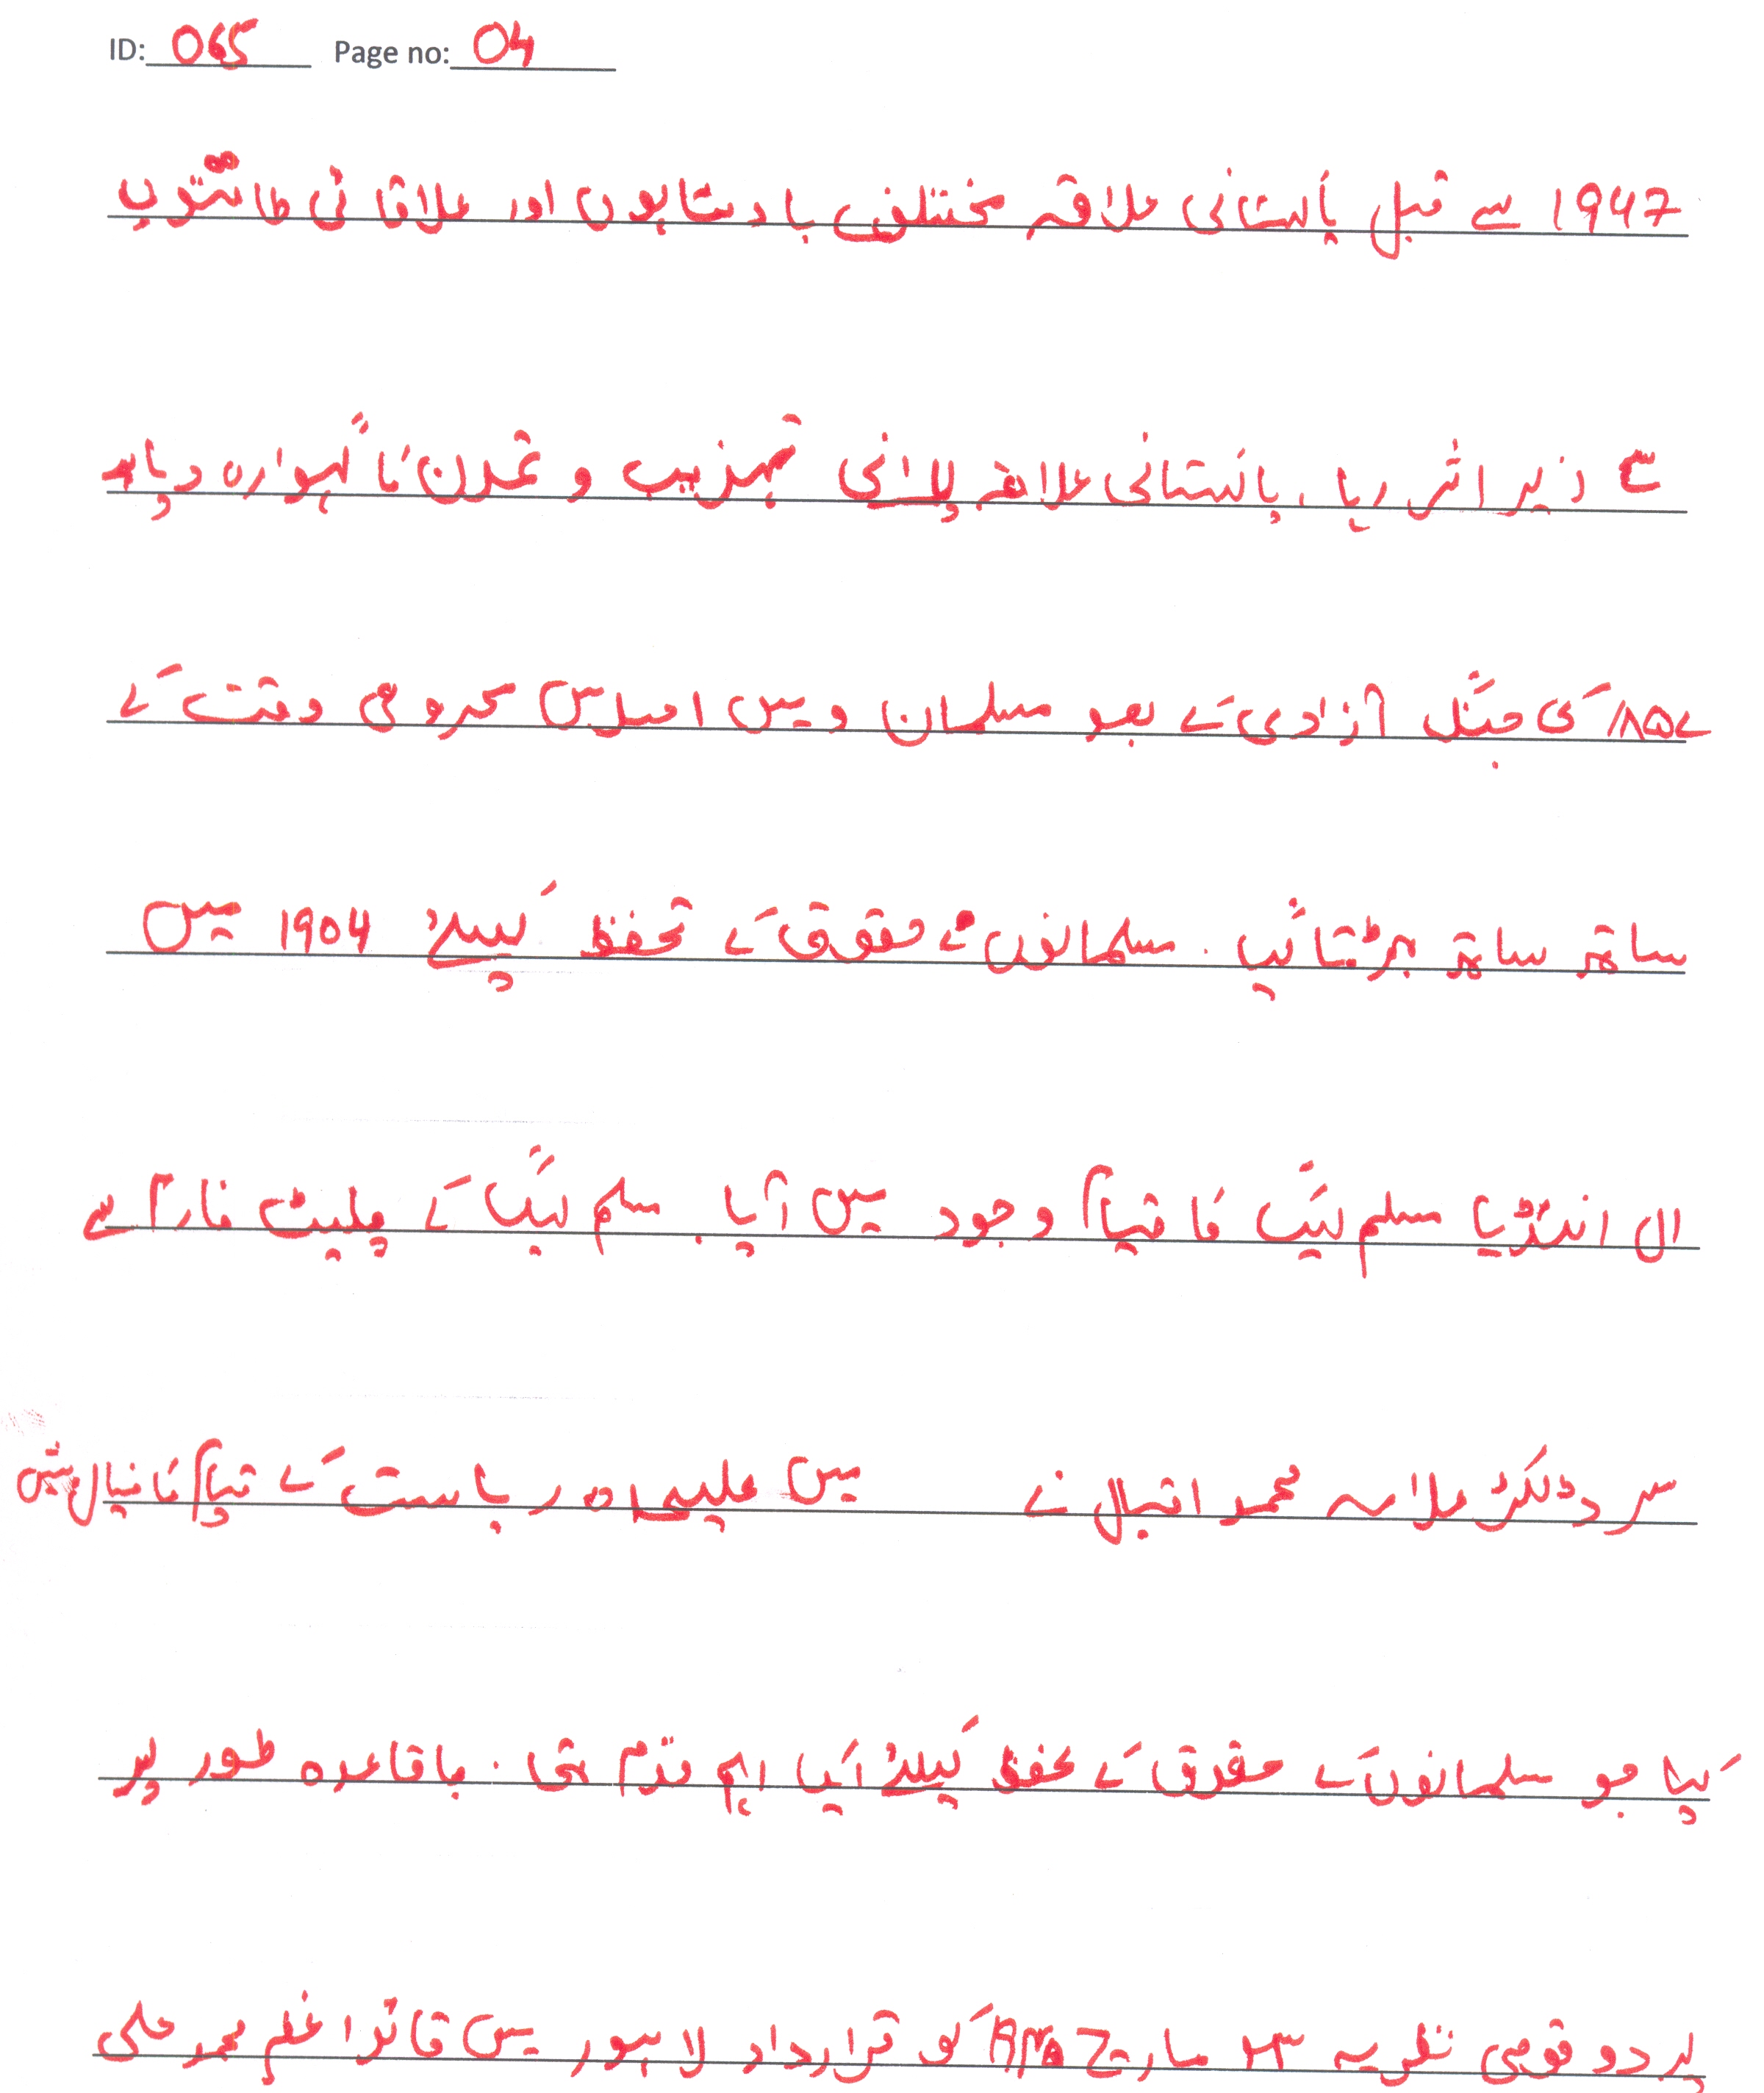 ID: 065 Page no: 04
1947 سے قبل پاکستانی علاقہ مختلف بادشاہوں اور علاقائی طاقتوں
کے زیر اثر رہا، پاکستانی علاقہ پرانی تہزیب و تمدن کا گہوارہ رہا ہے
۱۸۵۷ کی جنگ آزادی کے بعد مسلمان میں احساس محرومی وقت کے
ساتھ ساتھ بڑھتا گیا. مسلمانوں کے حقوق کے تحفظ کیلئے 1904 میں
ال انڈیا مسلم لیگ کا قیام وجود میں آیا. مسلم لیگ کے پلیٹ فارم سے
سر ڈاکٹر علامہ محمد اقبال نے میں علیحدہ ریاست کے قیام کا خیال پیش
کیا جو مسلمانوں کے حقوق کے تحفظ کیلئے ایک اہم قدم تھا. باقاعدہ طور پر
پر دو قومی نظریہ ۲۳ مارچ کو قرارداد لاہور میں قائد اعظم محمد علی